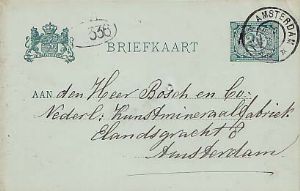 336
BRIEFKAART
AMSTERDAM
AAN den Heer Bosch en Co:
Nederl: Kunstmineraalfabriek
Elandsgracht 8
Amsterdam